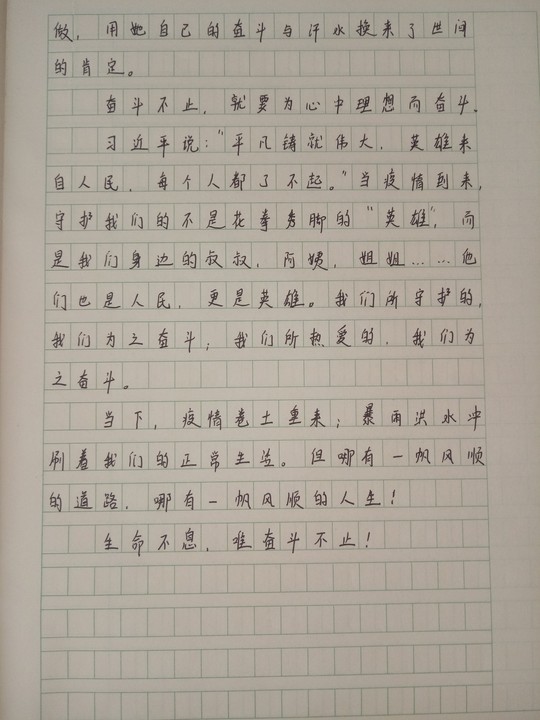 做，用她自己的奋斗与汗水换来了世间
的肯定。
奋斗不止，就要为心中理想而奋斗。
习近平说：“平凡铸就伟大，英雄来
自人民，每个人都了不起。”当疫情到来，
守护我们的不是花拳秀脚的“英雄”，而
是我们身边的叔叔，阿姨，姐姐……他
们也是人民，更是英雄。我们所守护的，
我们为之奋斗；我们所热爱的，我们为
之奋斗。
当下，疫情卷土重来；暴雨洪水冲
刷着我们的正常生活。但哪有一帆风顺
的道路，哪有一帆风顺的人生！
生命不息，唯奋斗不止！